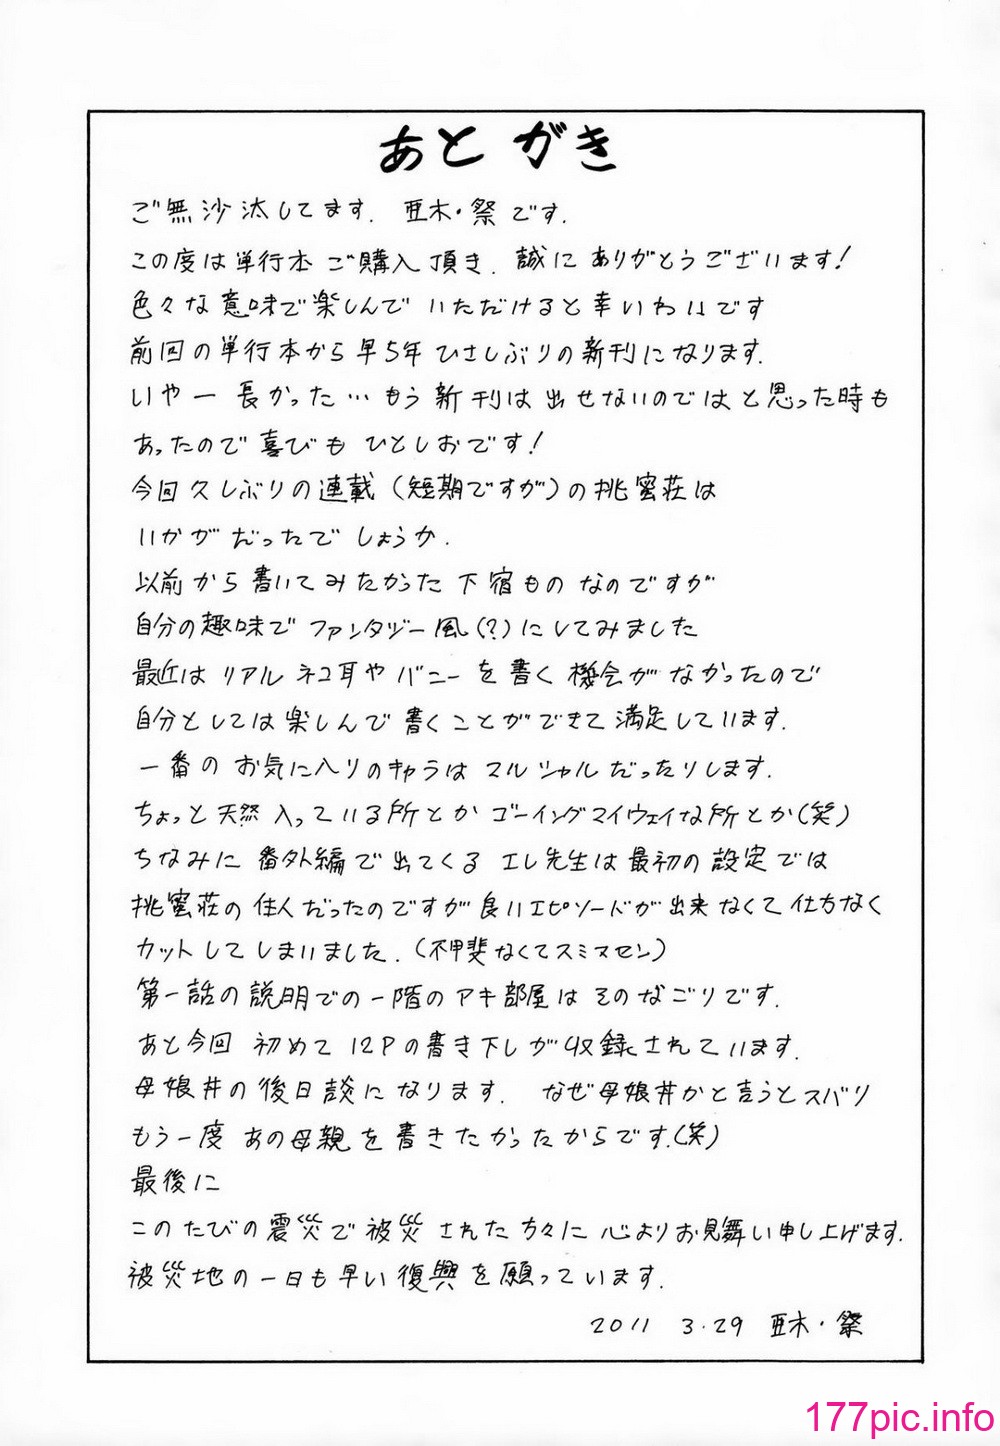 あとがき
ご無沙汰してます. 亜木・祭です.
この度は単行本ご購入頂き. 誠にありがとうございます!
色々な意味で楽しんでいただけると幸いわいです
前回の単行本から早5年ひさしぶりの新刊になります.
いやー長かった…もう新刊は出せないのではと思った時も
あったので喜びもひとしおです!
今回久しぶりの連載(短期ですが)の桃蜜荘は
いかがだったでしょうか.
以前から書いてみたかった下宿ものなのですが
自分の趣味でファンタジー風(?)にしてみました
最近はリアルネコ耳やバニーを書く機会がなかったので
自分としては楽しんで書くことができて満足しています.
一番のお気に入りのキャラはマルシャルだったりします.
ちょっと天然入っている所とかゴーイングマイウェイな所とか(笑)
ちなみに番外編で出てくるエレ先生は最初の設定では
桃蜜荘の住人だったのですが良いエピソードが出来なくて仕方なく
カットしてしまいました.(不甲斐なくてスミマセン)
第一話の説明での一階のアキ部屋はそのなごりです.
あと今回初めて12Pの書き下しが収録されています.
母娘丼の後日談になります. なぜ母娘丼かと言うとズバリ
もう一度あの母親を書きたかったからです.(笑)
最後に
このたびの震災で被災された方々に心よりお見舞い申し上げます.
被災地の一日も早い復興を願っています.
2011 3.29 亜木・祭
177pic.info